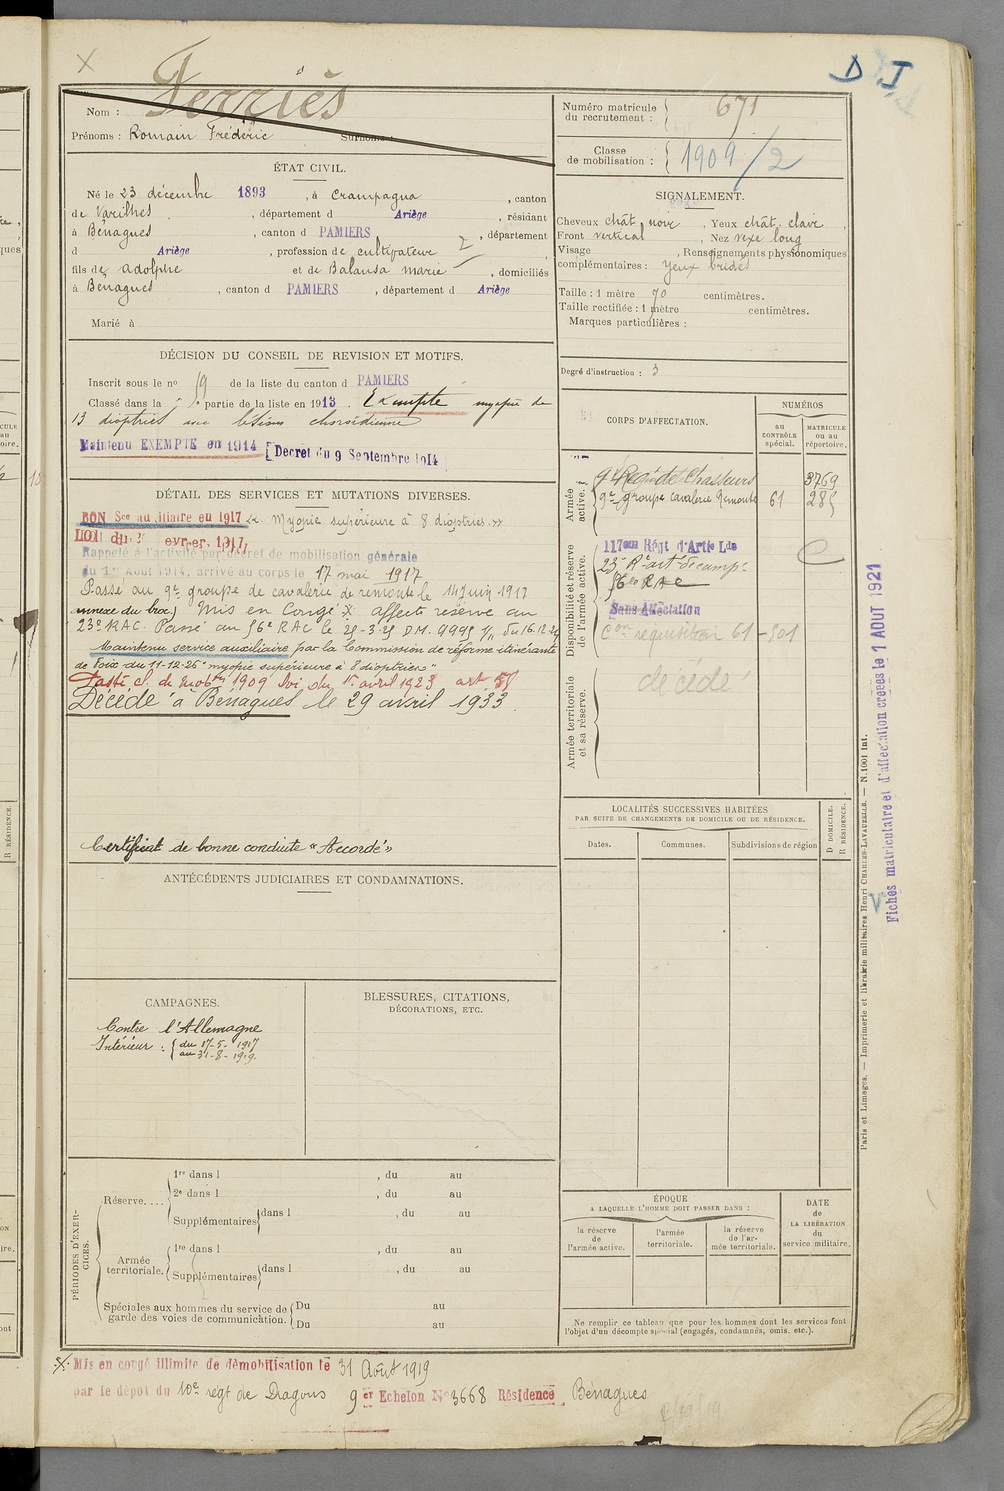 D J
Ferriès
Nom :
Prénoms : Romain Frédéric Surnoms :
Numéro matricule du recrutement : 671
Classe de mobilisation : 1909/2
ÉTAT CIVIL.
Né le 23 décembre 1893, à Crampagna, canton
de Varilhes, département d Ariège, résidant
à Bénagues, canton d PAMIERS, département
d Ariège, profession de cultivateur
fils de Adolphe et de Balansa Marie, domiciliés
à Bénagues, canton d PAMIERS, département d Ariège
Marié à
SIGNALEMENT.
Cheveux chât. noir, Yeux chât. clair,
Front vertical, Nez vexe long
Visage , Renseignements physionomiques
complémentaires : Yeux bridés
Taille : 1 mètre 70 centimètres.
Taille rectifiée : 1 mètre centimètres.
Marques particulières :
Degré d'instruction : 3
DÉCISION DU CONSEIL DE REVISION ET MOTIFS.
Inscrit sous le no 19 de la liste du canton d PAMIERS
Classé dans la partie de la liste en 1913. Exempté myopie de
13 dioptries avec lésions choroïdienne
Maintenu EXEMPTÉ en 1914 [Décret du 9 Septembre 1914]
DÉTAIL DES SERVICES ET MUTATIONS DIVERSES.
BON Sce auxiliaire en 1917 Myopie supérieure à 8 dioptries »
LOI du février 1917
Rappelé à l'activité par décret de mobilisation générale
du 1er Août 1914, arrivé au corps le 17 mai 1917
Passé au 9e groupe de cavalerie de remonte le 14 Juin 1917
annexe du broc) Mis en Congé X affecté réserve au
23e RAC Passé au 56e RAC le 25-3-25 D.M. 9995 1/11 du 16.12.24
Maintenu service auxiliaire par la Commission de réforme itinérante
de Foix du 11-12-25 "myopie supérieure à 8 dioptries"
Passé cl. de mobon 1909 loi du 1er avril 1923 art 58
Décédé à Bénagues le 29 avril 1933.
Certificat de bonne conduite « Accordé »
CORPS D'AFFECTATION.
NUMÉROS
au CONTRÔLE spécial.
MATRICULE ou au répertoire.
Armée active.
9e Régt de Chasseurs 3769
9e groupe cavalerie Remonte 61 285
Disponibilité et réserve de l'armée active.
117eme Régt d'Artie Lde
23e Rt art. de camp.
56e RAC
Sans Affectation
Con réquisition 61 - 501
Armée territoriale et sa réserve.
décédé
LOCALITÉS SUCCESSIVES HABITÉES
PAR SUITE DE CHANGEMENTS DE DOMICILE OU DE RÉSIDENCE.
Dates. Communes. Subdivisions de région
D DOMICILE.
R RÉSIDENCE.
ANTÉCÉDENTS JUDICIAIRES ET CONDAMNATIONS.
CAMPAGNES.
Contre l'Allemagne
Intérieur : { du 17-5-1917
au 31-8-1919.
BLESSURES, CITATIONS,
DÉCORATIONS, ETC.
PÉRIODES D'EXERCICES.
Réserve.... 1re dans l , du au
2e dans l , du au
Supplémentaires dans l , du au
Armée territoriale. 1re dans l , du au
Supplémentaires dans l , du au
Spéciales aux hommes du service de garde des voies de communication. Du au
Du au
ÉPOQUE
A LAQUELLE L'HOMME DOIT PASSER DANS :
la réserve de l'armée active.
l'armée territoriale.
la réserve de l'armée territoriale.
DATE de LA LIBÉRATION du service militaire.
Ne remplir ce tableau que pour les hommes dont les services font
l'objet d'un décompte spécial (engagés, condamnés, omis, etc.).
X. Mis en congé illimité de démobilisation le 31 Août 1919
par le dépôt du 10e régt de Dragons 9er Echelon No 3668 Résidence Bénagues
Fiches matriculaire et d'affectation créées le 1 AOUT 1921
Paris et Limoges. — Imprimerie et librairie militaires Henri CHARLES-LAVAUZELLE. — N. 1001 int.